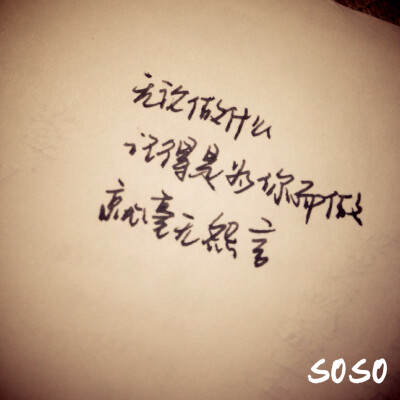 无论做什么
记得是为你而做
就毫无怨言
SOSO